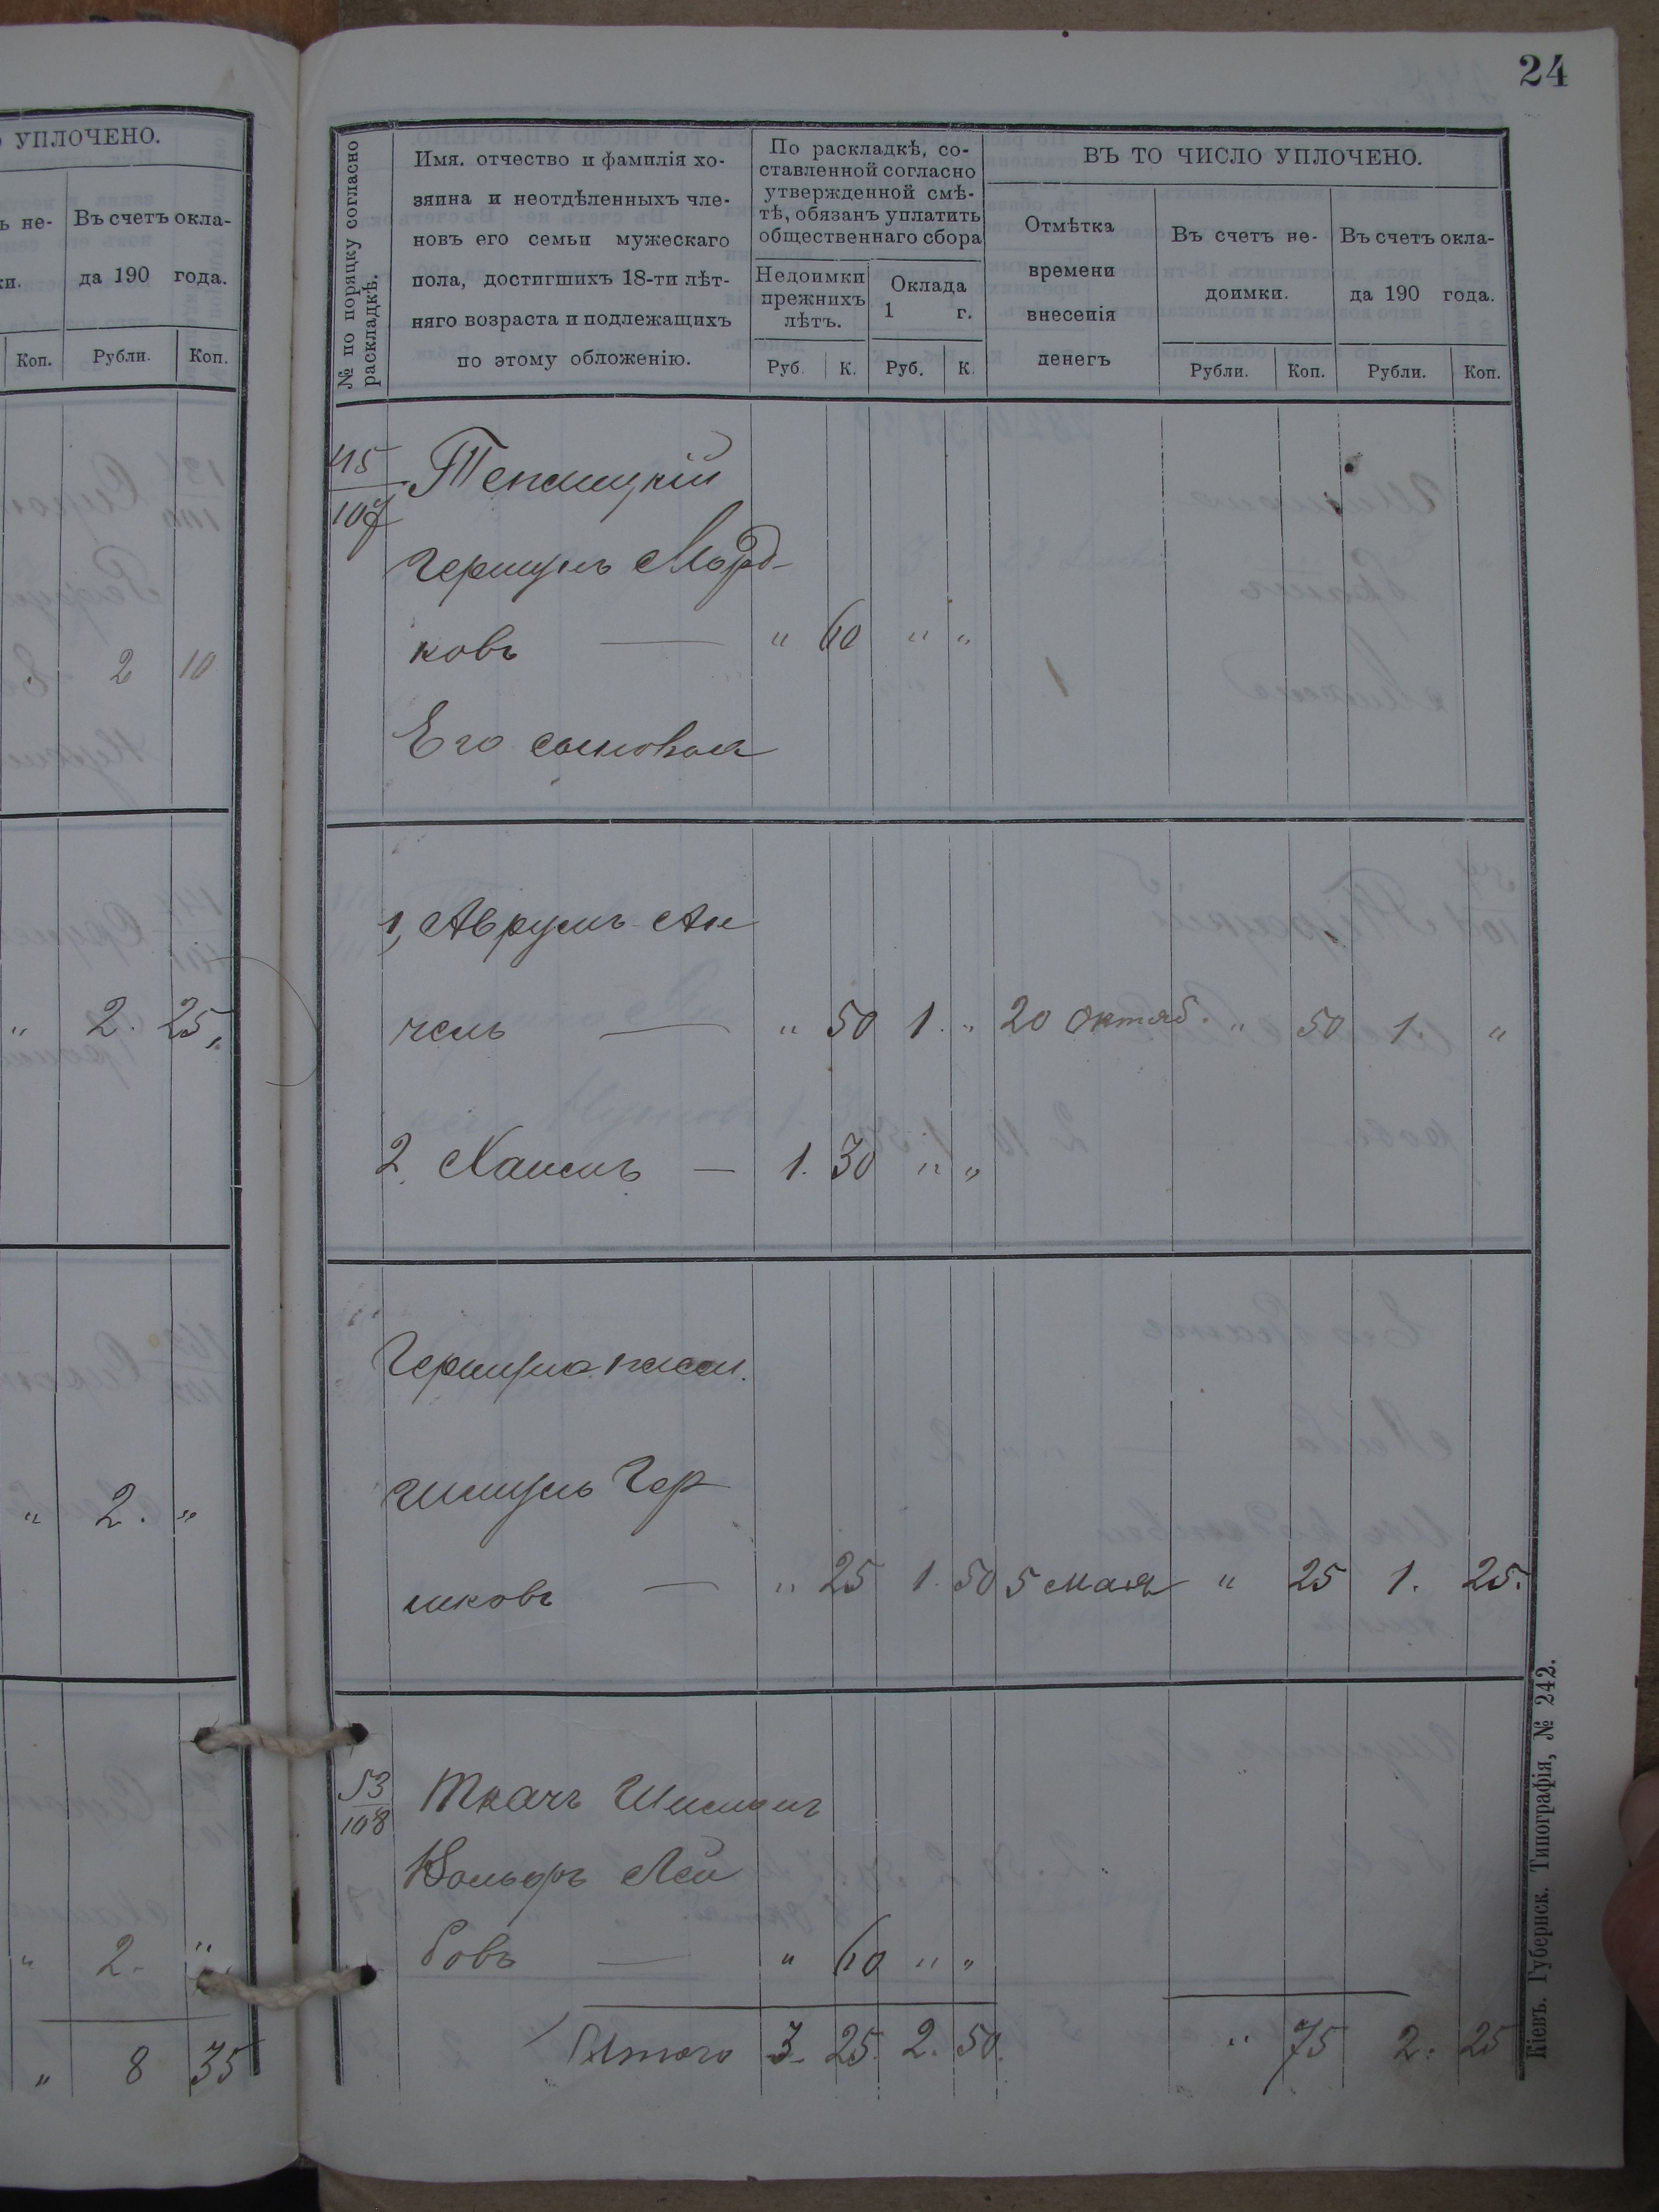 24
УПЛОЧЕНО.
Въ счетъ окла-
да 190 года.
Коп. Рубли. Коп.
2 10
" 2. 25
" 2. "
" 2. "
" 8 35
№ по порядку согласно
раскладкѣ.
Имя, отчество и фамилія хо-
зяина и неотдѣленныхъ чле-
новъ его семьи мужескаго
пола, достигшихъ 18-ти лѣт-
няго возраста и подлежащихъ
по этому обложенію.
По раскладкѣ, со-
ставленной согласно
утвержденной смѣ-
тѣ, обязанъ уплатить
общественнаго сбора
Недоимки
прежнихъ
лѣтъ.
Руб. К.
Оклада
1 г.
Руб. К.
ВЪ ТО ЧИСЛО УПЛОЧЕНО.
Отмѣтка
времени
внесенія
денегъ
Въ счетъ не-
доимки.
Рубли. Коп.
Въ счетъ окла-
да 190 года.
Рубли. Коп.
45
107
Мордъ-
ковъ — " 60 " "
Его сыновья
1, Аврумъ-Ан
чель — " 50 1. " 20 Октяб. " 50 1. "
2. Хаимъ — 1. 30 " "
Шмуль Гер
шковъ — " 25 1. 50 5 Мая " 25 1. 25.
53
108
Ткачъ Шимонъ
Вольфъ Лей
бовъ — " 60 " "
Итого 3. 25. 2. 50. " 75 2. 25
Кіевъ. Губернск. Типографія, № 242.